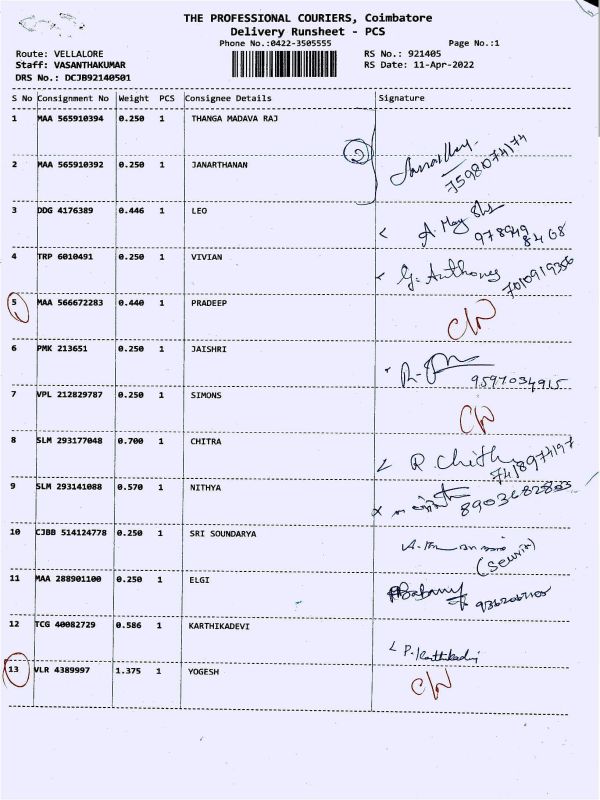 THE PROFESSIONAL COURIERS, Coimbatore
Delivery Runsheet - PCS
Phone No.:0422-3505555 Page No.:1
Route: VELLALORE RS No.: 921405
Staff: VASANTHAKUMAR RS Date: 11-Apr-2022
DRS No.: DCJB92140501
S No Consignment No Weight PCS Consignee Details Signature
1 MAA 565910394 0.250 1 THANGA MADAVA RAJ
2
2 MAA 565910392 0.250 1 JANARTHANAN
75981074174
3 DDG 4176389 0.446 1 LEO
4 TRP 6010491 0.250 1 VIVIAN G. Anthony
7010919356
5 MAA 566672283 0.440 1 PRADEEP
6 PMK 213651 0.250 1 JAISHRI
9597034915
7 VPL 212829787 0.250 1 SIMONS
8 SLM 293177048 0.700 1 CHITRA R. Chithra
7418974197
9 SLM 293141088 0.570 1 NITHYA
10 CJBB 514124778 0.250 1 SRI SOUNDARYA
11 MAA 288901100 0.250 1 ELGI
12 TCG 40082729 0.586 1 KARTHIKADEVI
P. Karthikadevi
13 VLR 4389997 1.375 1 YOGESH